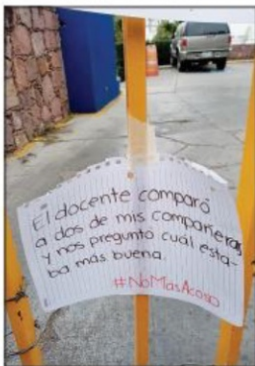 El docente comparó
a dos de mis compañeras
y nos preguntó cuál esta-
ba más buena.
#NoMásAcoso